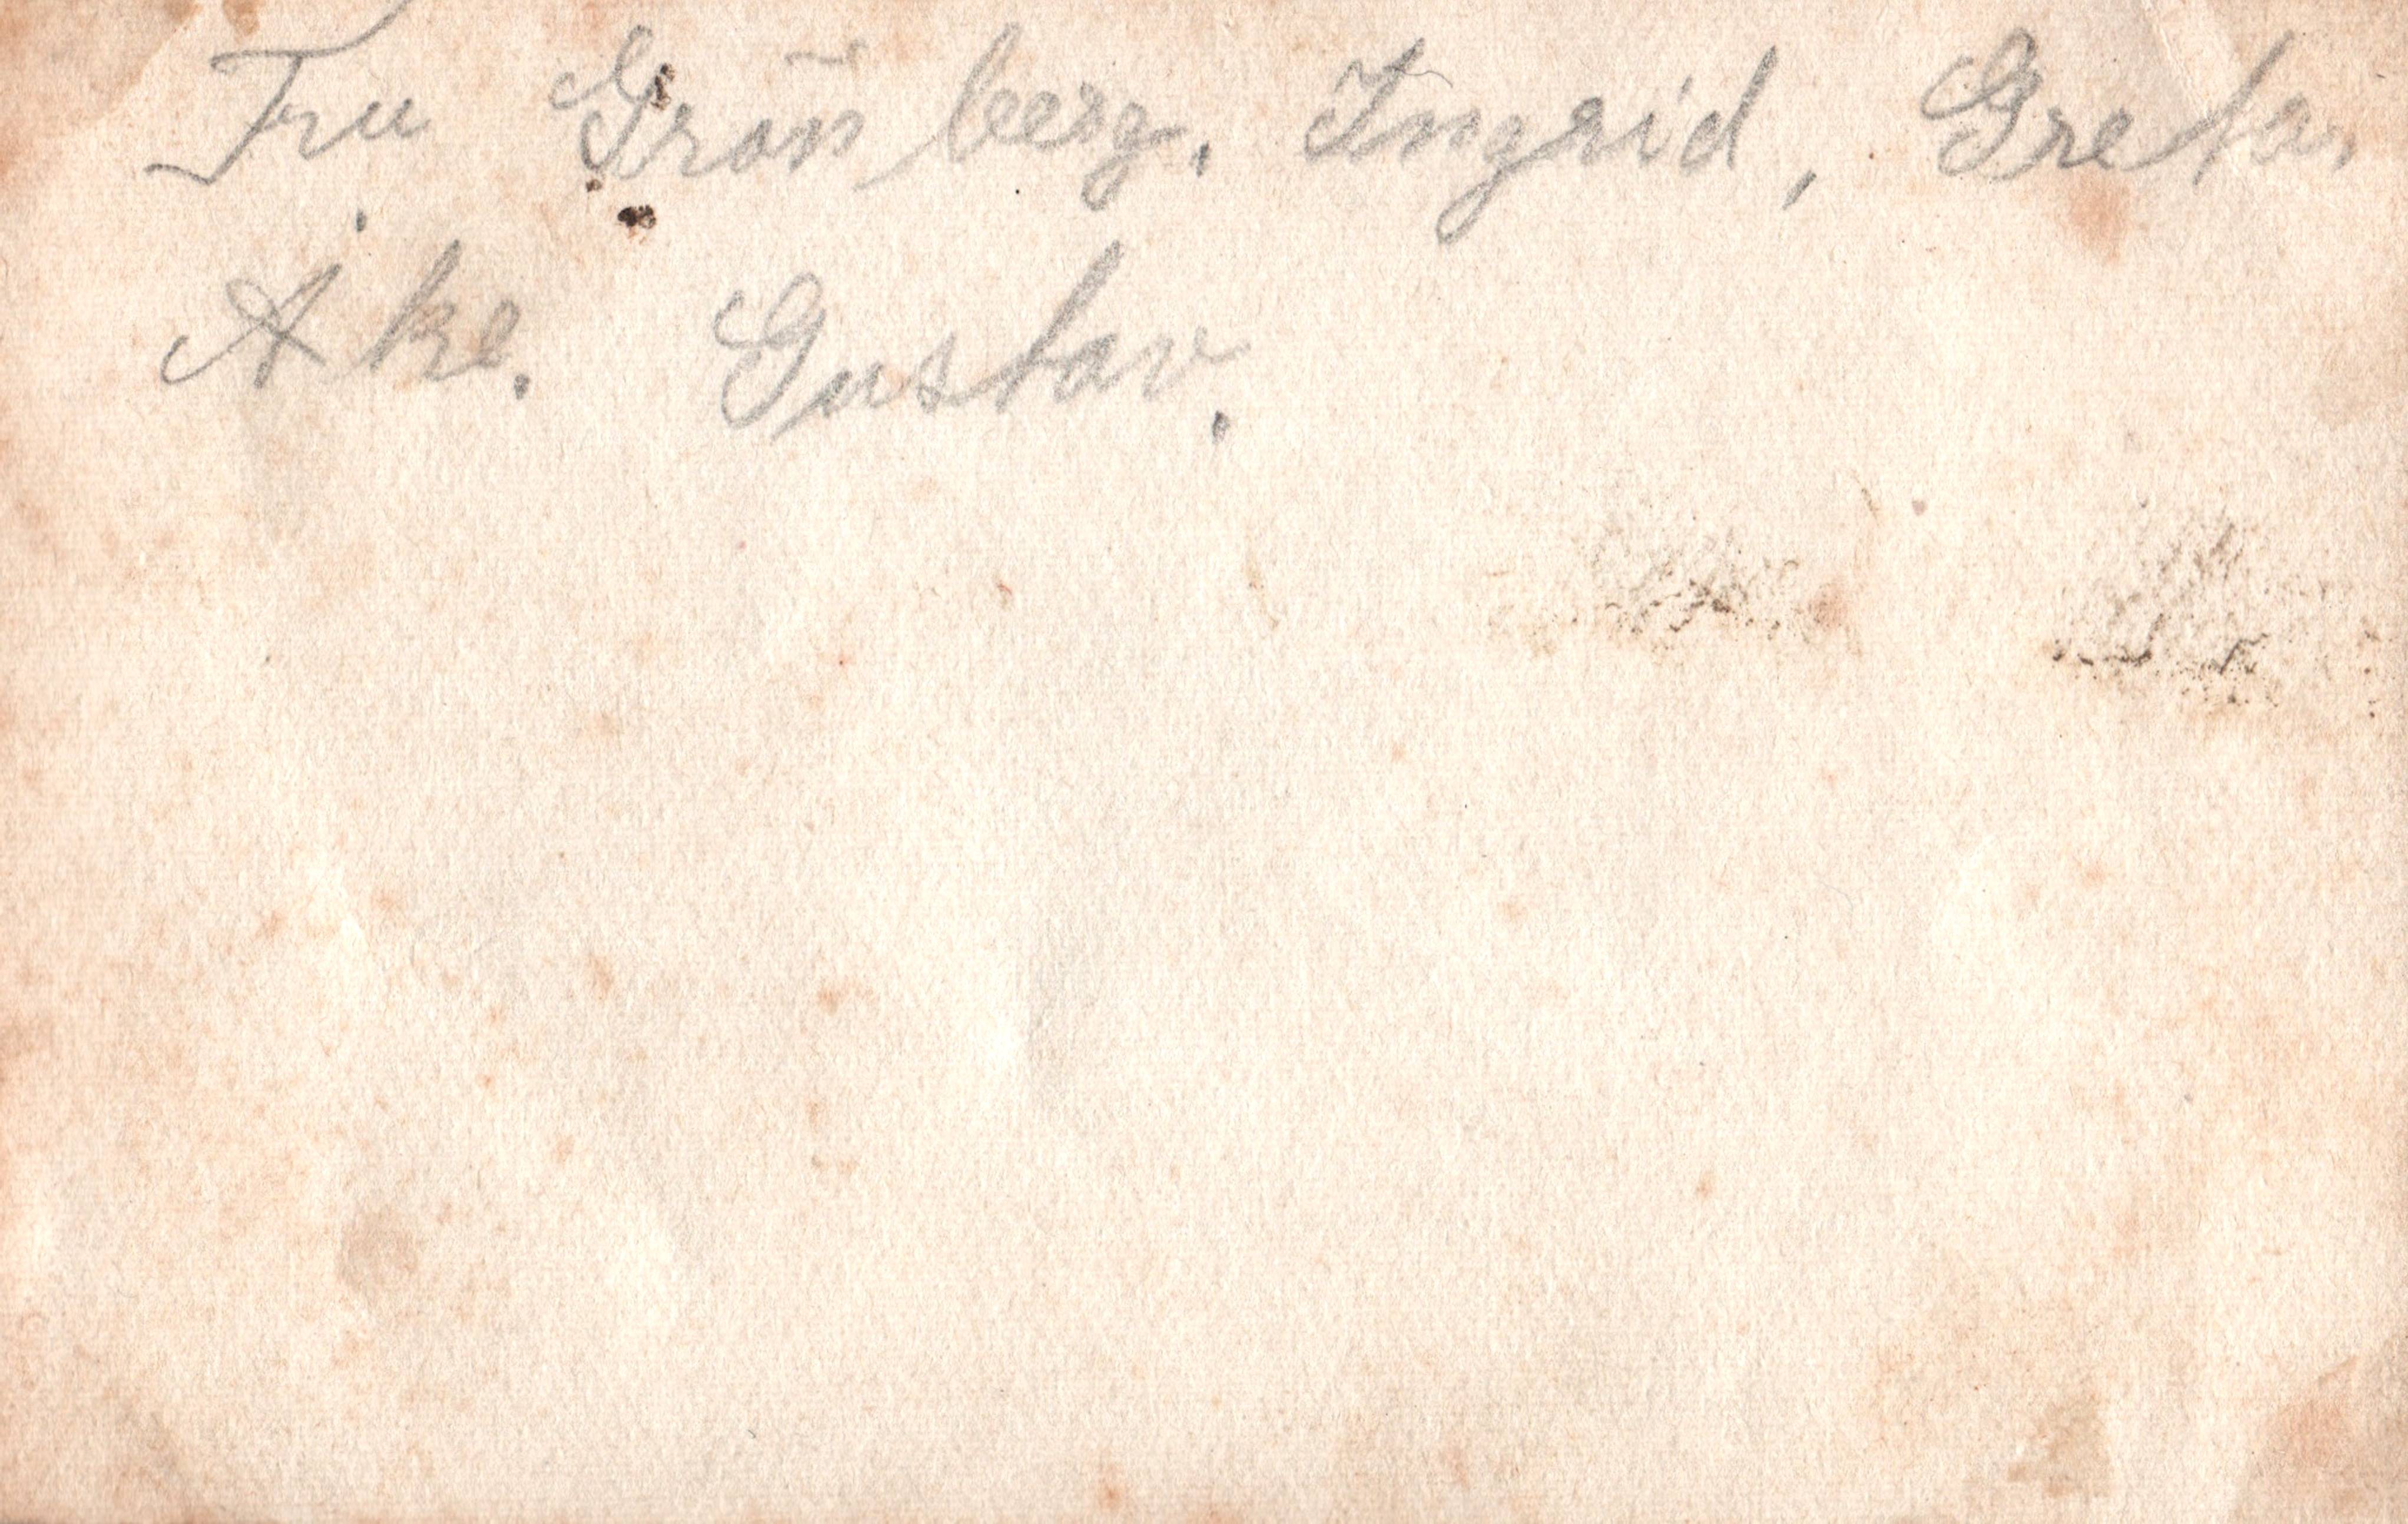 Fru Grönberg. Ingrid, Greta,
Åke. Gustav.